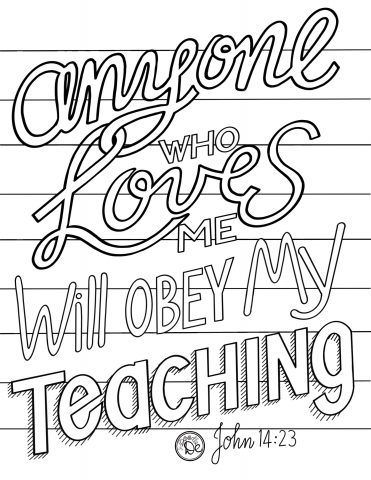 anyone
WHO
Loves
ME
Will OBEY My
TeaCHING
John 14:23